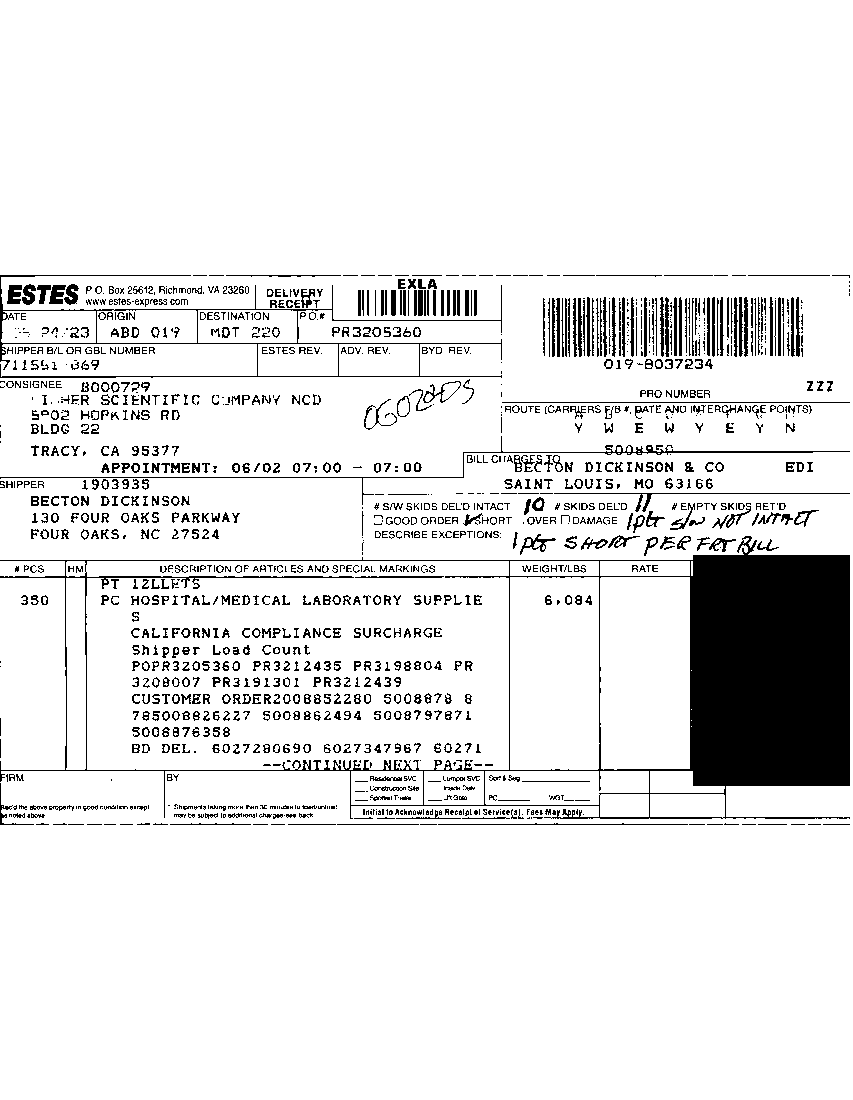 ESTES P.O. Box 25612, Richmond, VA 23260
www.estes-express.com
DELIVERY
RECEIPT
EXLA
DATE ORIGIN DESTINATION P.O.#
24/23 ABD 019 MDT 220 PR3205360
019-8037234
SHIPPER B/L OR GBL NUMBER ESTES REV. ADV. REV. BYD REV.
PRO NUMBER ZZZ
CONSIGNEE 8000729
SCIENTIFIC COMPANY NCD
HOPKINS RD
BLDG 22
TRACY, CA 95377
APPOINTMENT: 06/02 07:00 - 07:00
ROUTE (CARRIERS F/B #, DATE AND INTERCHANGE POINTS)
Y W E W Y E Y N
5008950
BILL CHARGES TO
BECTON DICKINSON & CO EDI
SAINT LOUIS, MO 63166
SHIPPER 1903935
BECTON DICKINSON
130 FOUR OAKS PARKWAY
FOUR OAKS, NC 27524
# S/W SKIDS DEL'D INTACT 10 # SKIDS DEL'D 11 # EMPTY SKIDS RET'D
GOOD ORDER SHORT OVER DAMAGE 1plt s/w NOT INTACT
DESCRIBE EXCEPTIONS: 1plt SHORT PER FRT BILL
# PCS HM DESCRIPTION OF ARTICLES AND SPECIAL MARKINGS WEIGHT/LBS RATE
350 PC HOSPITAL/MEDICAL LABORATORY SUPPLIE 6,084
S
CALIFORNIA COMPLIANCE SURCHARGE
Shipper Load Count
POPR3205360 PR3212435 PR3198804 PR
3208007 PR3191301 PR3212439
CUSTOMER ORDER2008852280 5008878 8
785008826227 5008862494 5008797871
5008876358
BD DEL. 6027280690 6027347967 60271
--CONTINUED NEXT PAGE--
FIRM BY
Residential SVC Lumper SVC Sort & Seg
Construction Site Inside Deliv
Liftgate PC WGT
Rec'd the above property in good condition except
as noted above
* Shipments taking more than 30 minutes to load/unload
may be subject to additional charges-see back
Initial to Acknowledge Receipt of Service(s). Fees May Apply.